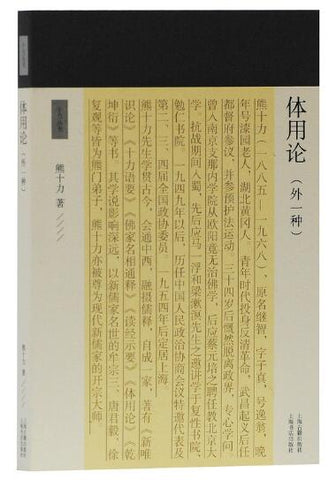 体用论
（外一种）
熊十力 著
体用论（外一种）
熊十力 著
上海古籍出版社
上海书店出版社
熊十力（一八八五—一九六八），原名继智，字子真，号逸翁，晚
年号漆园老人，湖北黄冈人。青年时代投身反清革命，武昌起义后任
都督府参议，并参预护法运动。三十四岁后慨然脱离政界，专心学问，
曾入南京支那内学院从欧阳竟无治佛学，后应蔡元培之聘往教北京大
学。抗战期间入蜀，先后应马一浮和梁漱溟先生之邀讲学于复性书院、
勉仁书院。一九四九年以后，历任中国人民政治协商会议特邀代表及
第二、三、四届全国政协委员。一九五四年后定居上海。
熊十力先生学贯古今，会通中西，融摄儒释，自成一家，著有《新唯
识论》《十力语要》《佛家名相通释》《读经示要》《体用论》《乾
坤衍》等书，其学说影响深远，以新儒家名世的牟宗三、唐君毅、徐
复观等皆为熊门弟子，熊十力亦被尊为现代新儒家的开宗大师。